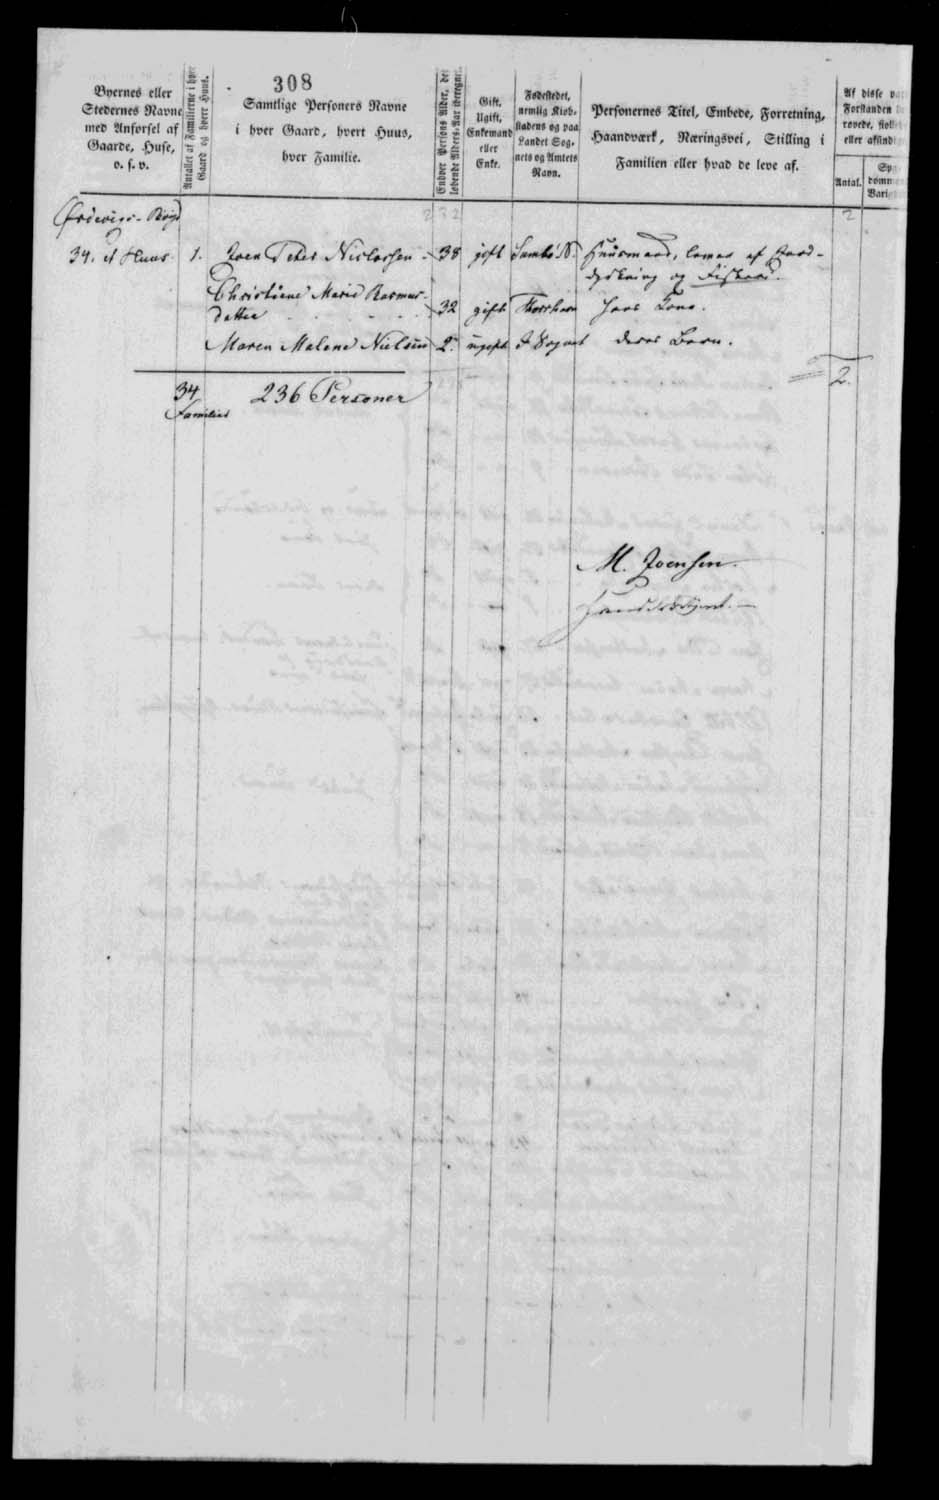 308
Byernes eller
Stedernes Navne
med Anførsel af
Gaarde, Huse,
o. s. v.
Antallet af Familierne i hver
Gaard og hvert Huus.
Samtlige Personers Navne
i hver Gaard, hvert Huus,
hver Familie.
Enhver Persons Alder, det
løbende Alders-Aar iberegnet.
Gift,
Ugift,
Enkemand
eller
Enke.
Fødestedet,
nemlig Kiøb-
stadens og paa
Landet Sog-
nets og Amtets
Navn.
Personernes Titel, Embede, Forretning,
Haandværk, Næringsvei, Stilling i
Familien eller hvad de leve af.
Af disse
Forstanden
eller
Antal.
232 2
34. et Huus 1. Joen Peter Niclassen 38 gift Sumbø S. Huusmand, lever af Jord-
dyrkning og Fiskeri.
Christiane Marie Rasmus-
datter 32 gift Thorshavn hans Kone.
Maren Malene Nielsen 2 ugift I Sognet deres Barn.
2.
34 236 Personer
Familier
M. Joensen.